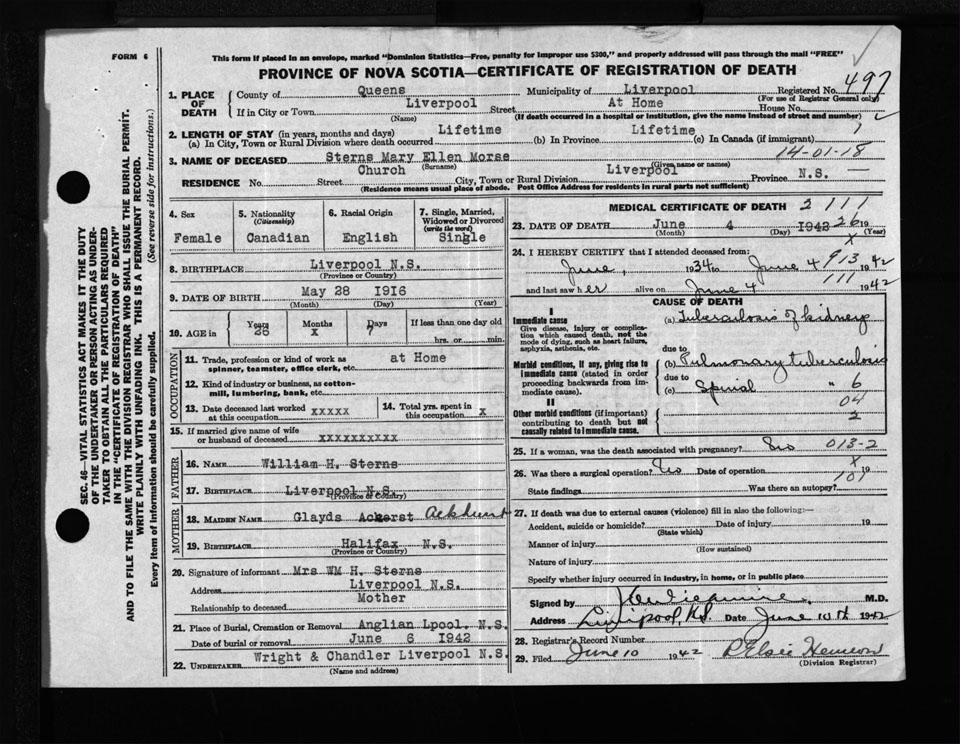 FORM 6
This form if placed in an envelope, marked "Dominion Statistics—Free, penalty for improper use $300," and properly addressed will pass through the mail "FREE"
PROVINCE OF NOVA SCOTIA—CERTIFICATE OF REGISTRATION OF DEATH
497
1. PLACE OF DEATH
County of Queens Municipality of Liverpool Registered No.
(For use of Registrar General only)
If in City or Town Liverpool Street At Home House No.
(Name) (If death occurred in a hospital or institution, give the name instead of street and number)
2. LENGTH OF STAY (in years, months and days) Lifetime Lifetime
(a) In City, Town or Rural Division where death occurred (b) In Province (c) In Canada (if immigrant)
14-01-18
3. NAME OF DECEASED Sterns Mary Ellen Morse
(Surname) (Given name or names)
RESIDENCE No. Street Church City, Town or Rural Division Liverpool Province N.S.
(Residence means usual place of abode. Post Office Address for residents in rural parts not sufficient)
4. Sex Female
5. Nationality (Citizenship) Canadian
6. Racial Origin English
7. Single, Married, Widowed or Divorced (write the word) Single
8. BIRTHPLACE Liverpool N.S.
(Province or Country)
9. DATE OF BIRTH May 28 1916
(Month) (Day) (Year)
10. AGE in Years Months Days If less than one day old
x 7 hrs. or min.
OCCUPATION
11. Trade, profession or kind of work as spinner, teamster, office clerk, etc. at Home
12. Kind of industry or business, as cotton-mill, lumbering, bank, etc.
13. Date deceased last worked at this occupation xxxxx
14. Total yrs. spent in this occupation x
15. If married give name of wife or husband of deceased xxxxxxxxxx
FATHER
16. NAME William H. Sterns
17. BIRTHPLACE Liverpool N.S.
(Province or Country)
MOTHER
18. MAIDEN NAME Glayds Ackerst Ackhurst
19. BIRTHPLACE Halifax N.S.
(Province or Country)
20. Signature of informant Mrs WM H. Sterns
Address Liverpool N.S.
Relationship to deceased Mother
21. Place of Burial, Cremation or Removal Anglian Lpool. N.S.
Date of burial or removal June 6 1942
22. UNDERTAKER Wright & Chandler Liverpool N.S.
(Name and address)
MEDICAL CERTIFICATE OF DEATH 2 111
23. DATE OF DEATH June 4 1942 26 19
(Month) (Day) (Year)
x
24. I HEREBY CERTIFY that I attended deceased from:
June, 1934 to June 4 1942
913
and last saw her alive on June 4 1942
111
CAUSE OF DEATH
I
Immediate cause
Give disease, injury or complication which caused death, not the mode of dying, such as heart failure, asphyxia, asthenia, etc.
(a) Tuberculosis of kidneys
due to
Morbid conditions, if any, giving rise to immediate cause (stated in order proceeding backwards from immediate cause).
(b) Pulmonary tuberculosis
due to
(c) Spinal " 6
04
2
II
Other morbid conditions (if important) contributing to death but not causally related to immediate cause.
25. If a woman, was the death associated with pregnancy? No 013-2
26. Was there a surgical operation? Date of operation x 19
State findings Was there an autopsy? 101
27. If death was due to external causes (violence) fill in also the following:—
Accident, suicide or homicide? Date of injury 19
(State which)
Manner of injury
(How sustained)
Nature of injury
Specify whether injury occurred in industry, in home, or in public place
Signed by M.D.
Address Liverpool, N.S. Date June 10th 1942
28. Registrar's Record Number
29. Filed June 10 1942
(Division Registrar)
SEC. 46—VITAL STATISTICS ACT MAKES IT THE DUTY
OF THE UNDERTAKER OR PERSON ACTING AS UNDER-
TAKER TO OBTAIN ALL THE PARTICULARS REQUIRED
IN THE "CERTIFICATE OF REGISTRATION OF DEATH"
AND TO FILE THE SAME WITH THE DIVISION REGISTRAR WHO SHALL ISSUE THE BURIAL PERMIT.
WRITE PLAINLY WITH UNFADING INK. THIS IS A PERMANENT RECORD.
Every item of information should be carefully supplied. (See reverse side for instructions.)